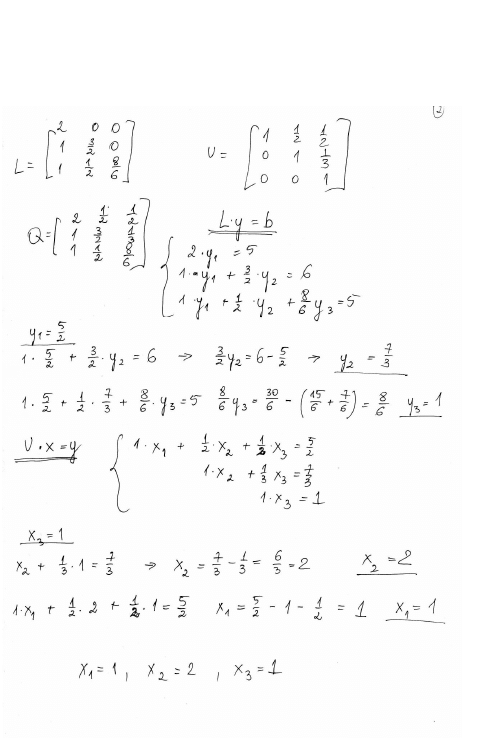 2
L = [2 0 0; 1 3/2 0; 1 1/2 8/6] U = [1 1/2 1/2; 0 1 1/3; 0 0 1]
Q = [2 1/2 1/2; 1 3/2 1/3; 1 1/2 8/6] L·y = b
2·y₁ = 5
1·y₁ + 3/2·y₂ = 6
1·y₁ + 1/2·y₂ + 8/6 y₃ = 5
y₁ = 5/2
1·5/2 + 3/2·y₂ = 6 → 3/2 y₂ = 6 - 5/2 → y₂ = 7/3
1·5/2 + 1/2·7/3 + 8/6·y₃ = 5 8/6 y₃ = 30/6 - (15/6 + 7/6) = 8/6 y₃ = 1
U·x = y
1·x₁ + 1/2·x₂ + 1/2·x₃ = 5/2
1·x₂ + 1/3 x₃ = 7/3
1·x₃ = 1
x₃ = 1
x₂ + 1/3·1 = 7/3 → x₂ = 7/3 - 1/3 = 6/3 = 2 x₂ = 2
1·x₁ + 1/2·2 + 1/2·1 = 5/2 x₁ = 5/2 - 1 - 1/2 = 1 x₁ = 1
x₁ = 1, x₂ = 2, x₃ = 1